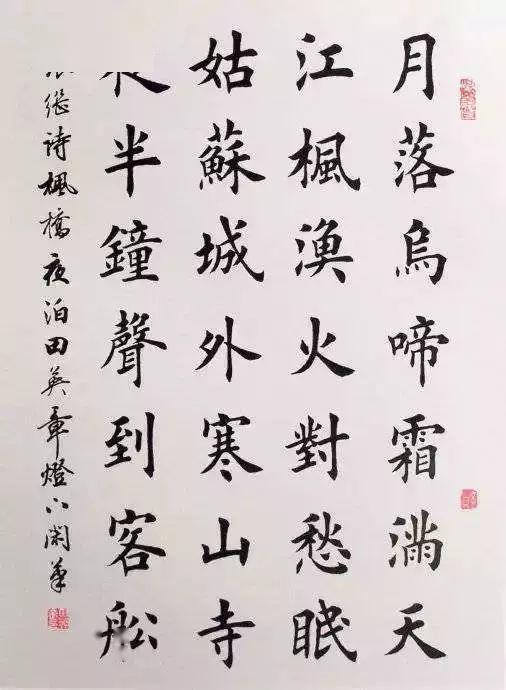 月落烏啼霜滿天
江楓漁火對愁眠
姑蘇城外寒山寺
半鐘聲到客船
继诗楓橋夜泊田英章燈下闲筆